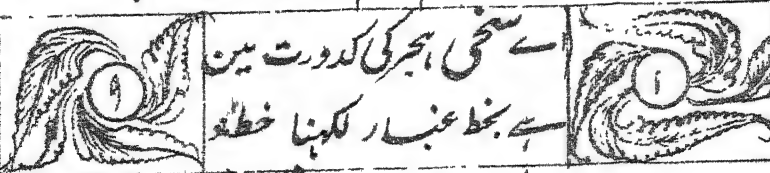 اے سخی ہجر کی کدورت مین
ہے بخط غبار لکہنا خط